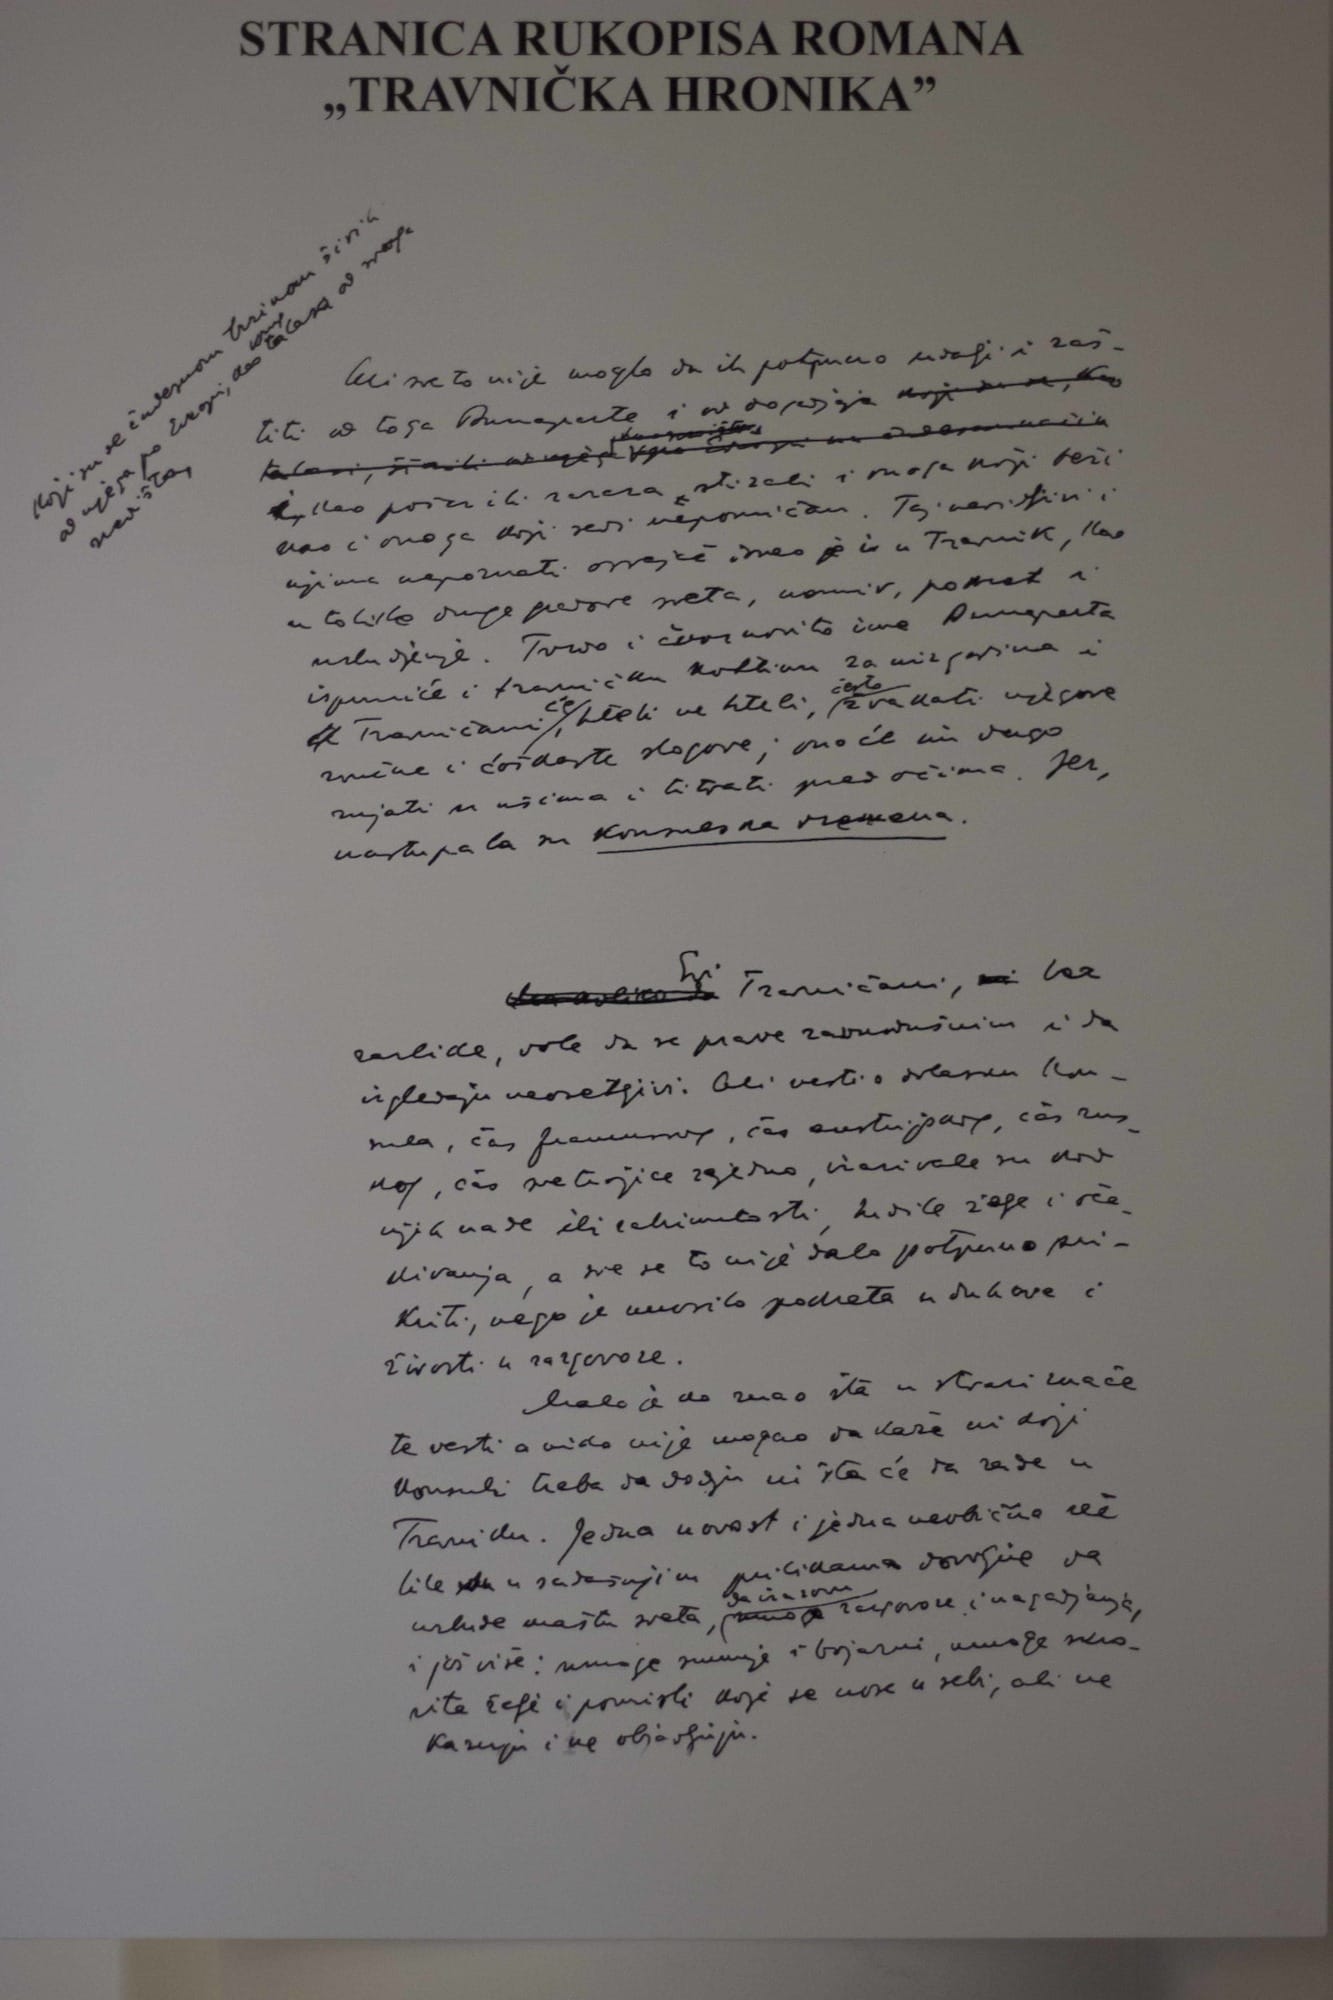 STRANICA RUKOPISA ROMANA
„TRAVNIČKA HRONIKA”
koji su se čudesnom brzinom širili
od njega po Evropi, kao talasa od svoga
središta,
Ali sve to nije moglo da ih potpuno udalji i zaš-
titi od toga Bunaparte i od dogadjaja koji su se, kao
talasi, širili od njega
kao požar ili zaraza, stizali i onoga koji beži
kao i onoga koji sedi nepomičan. Taj nevidljivi i
njima nepoznati osvajač izneo je i u Travnik, kao
u tolike druge gradove sveta, nemir, pokret i
uzbudjenje. Tvrdo i čvornovito ime Bunaparta
ispuniće i travničku kotlinu za niz godina i
Travničani će, hteli ne hteli, često žvakati njegove
zvučne i ćoškaste slogove; ono će im dugo
zujati u ušima i titrati pred očima. Jer,
nastupala su konsulska vremena.
Svi Travničani, bez
razlike, vole da se prave ravnodušnim i da
izgledaju neosetljivi. Ali vesti o dolasku kon-
sula, čas francuskog, čas austrijskog, čas rus-
kog, čas sve trojice zajedno, izazivale su kod
njih nade ili zabrinutosti, budile želje i oče-
kivanja, a sve se to nije dalo potpuno pri-
kriti, nego je unosilo pokreta u duhove i
živosti u razgovore.
Malo je ko znao šta u stvari znače
te vesti a niko nije mogao da kaže ni koji
konsuli treba da dodju ni šta će da rade u
Travniku. Jedna novost i jedna neobična reč
bile su u sadašnjim prilikama dovoljne da
uzbude maštu sveta, da izazovu mnoge razgovore i nagadjanja,
i još više: mnoge sumnje i bojazni, mnoge skro-
vite želje i pomisli koje se nose u sebi, ali ne
kazuju i ne objavljuju.